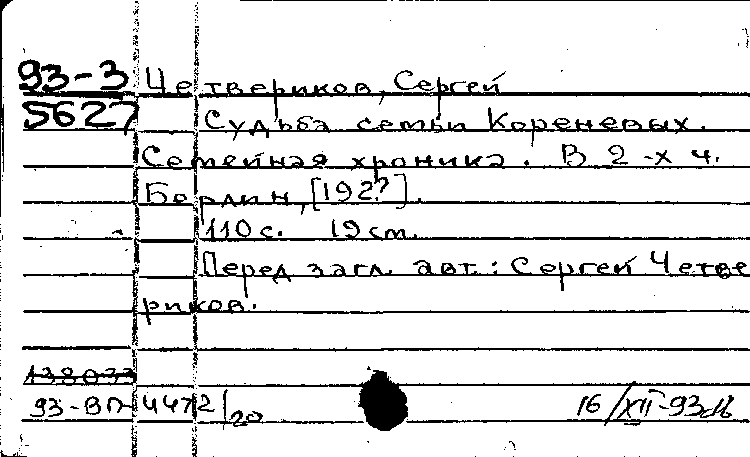 93-3 Четвериков, Сергей
5627 Судьба семьи Кореневых.
Семейная хроника. В 2-х ч.
Берлин, [192?].
110 с. 19 см.
Перед загл. авт.: Сергей Четве
риков.
138033
93-ВП 4472/20 16/XII-93